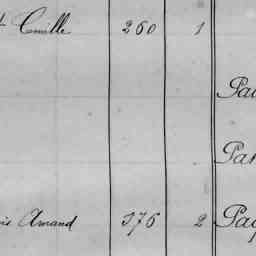 Camille 260 1
Pa
Par
Amand 376 2 Pa